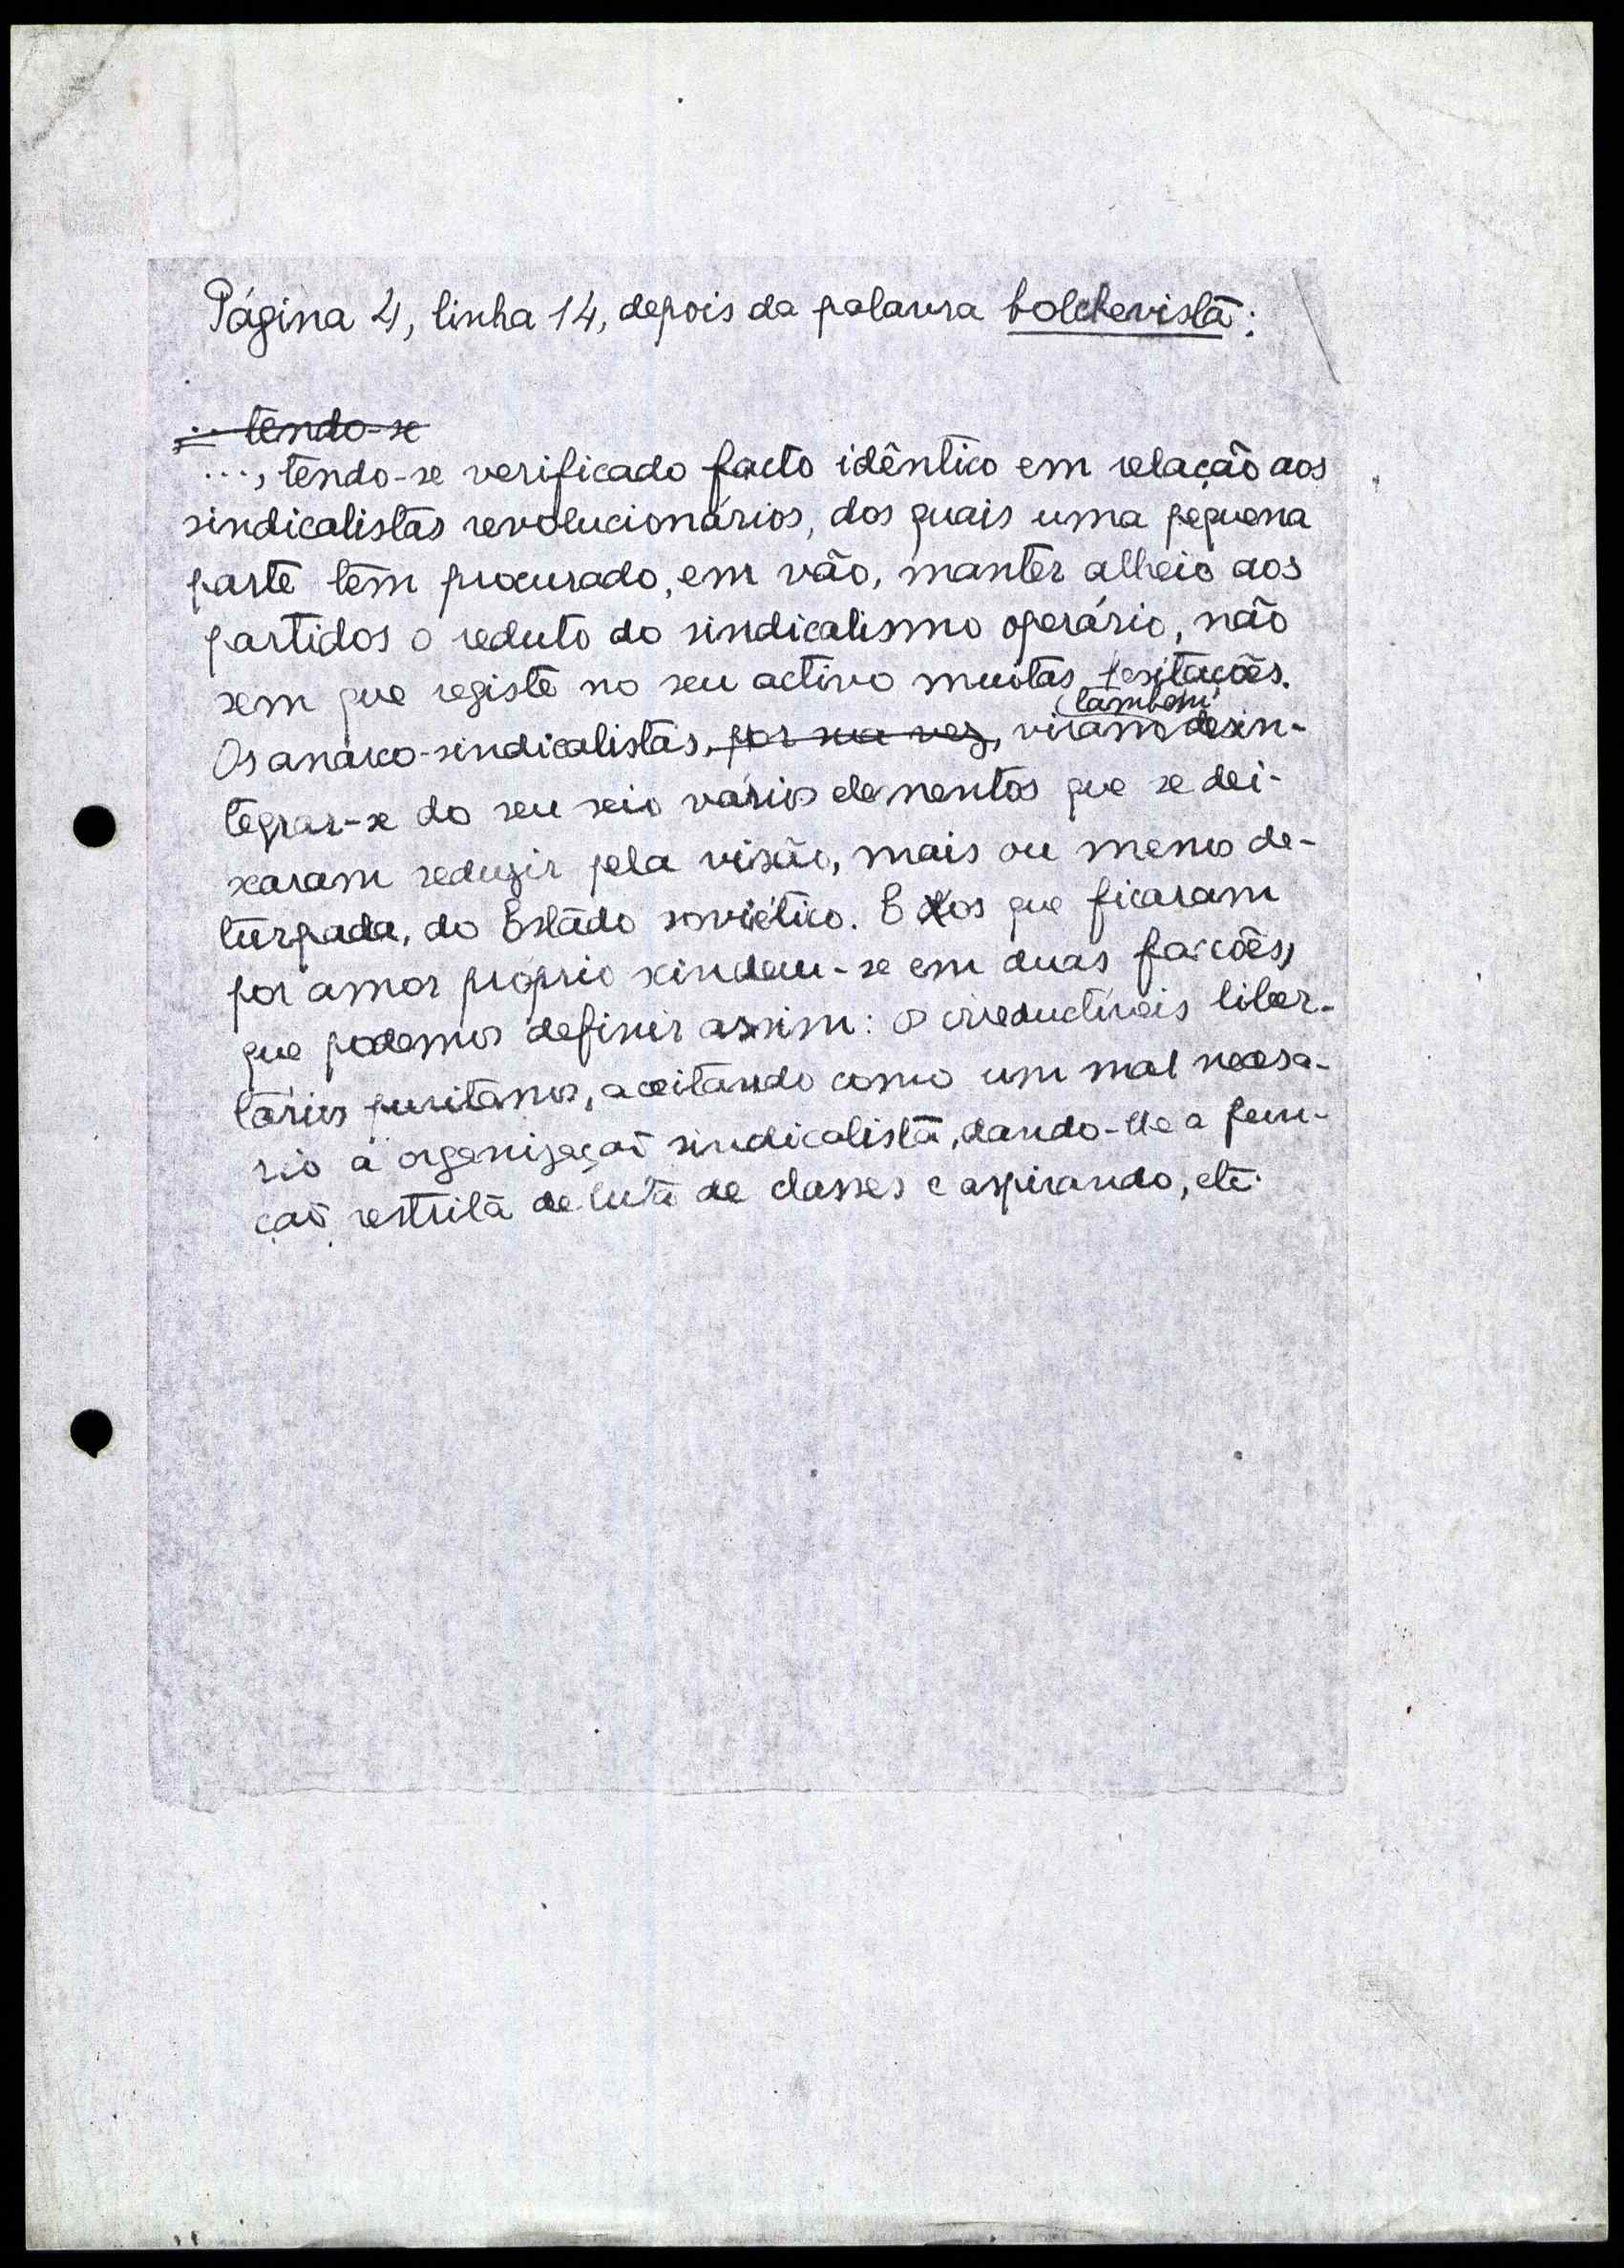 Página 4, linha 14, depois da palavra bolchevista:
... tendo-se
..., tendo-se verificado facto idêntico em relação aos
sindicalistas revolucionários, dos quais uma pequena
parte têm procurado, em vão, manter alheio aos
partidos o reduto do sindicalismo operário, não
sem que registe no seu activo muitas hesitações.
também
Os anarco-sindicalistas, por sua vez, viram desin-
tegrar-se do seu seio vários elementos que se dei-
xaram seduzir pela visão, mais ou menos de-
turpada, do Estado soviético. E os que ficaram
por amor próprio scindem-se em duas facções,
que podemos definir assim: os irreductíveis liber-
tários puritanos, aceitando como um mal necessá-
rio a organização sindicalista, dando-lhe a fun-
ção restrita de luta de classes e aspirando, etc.